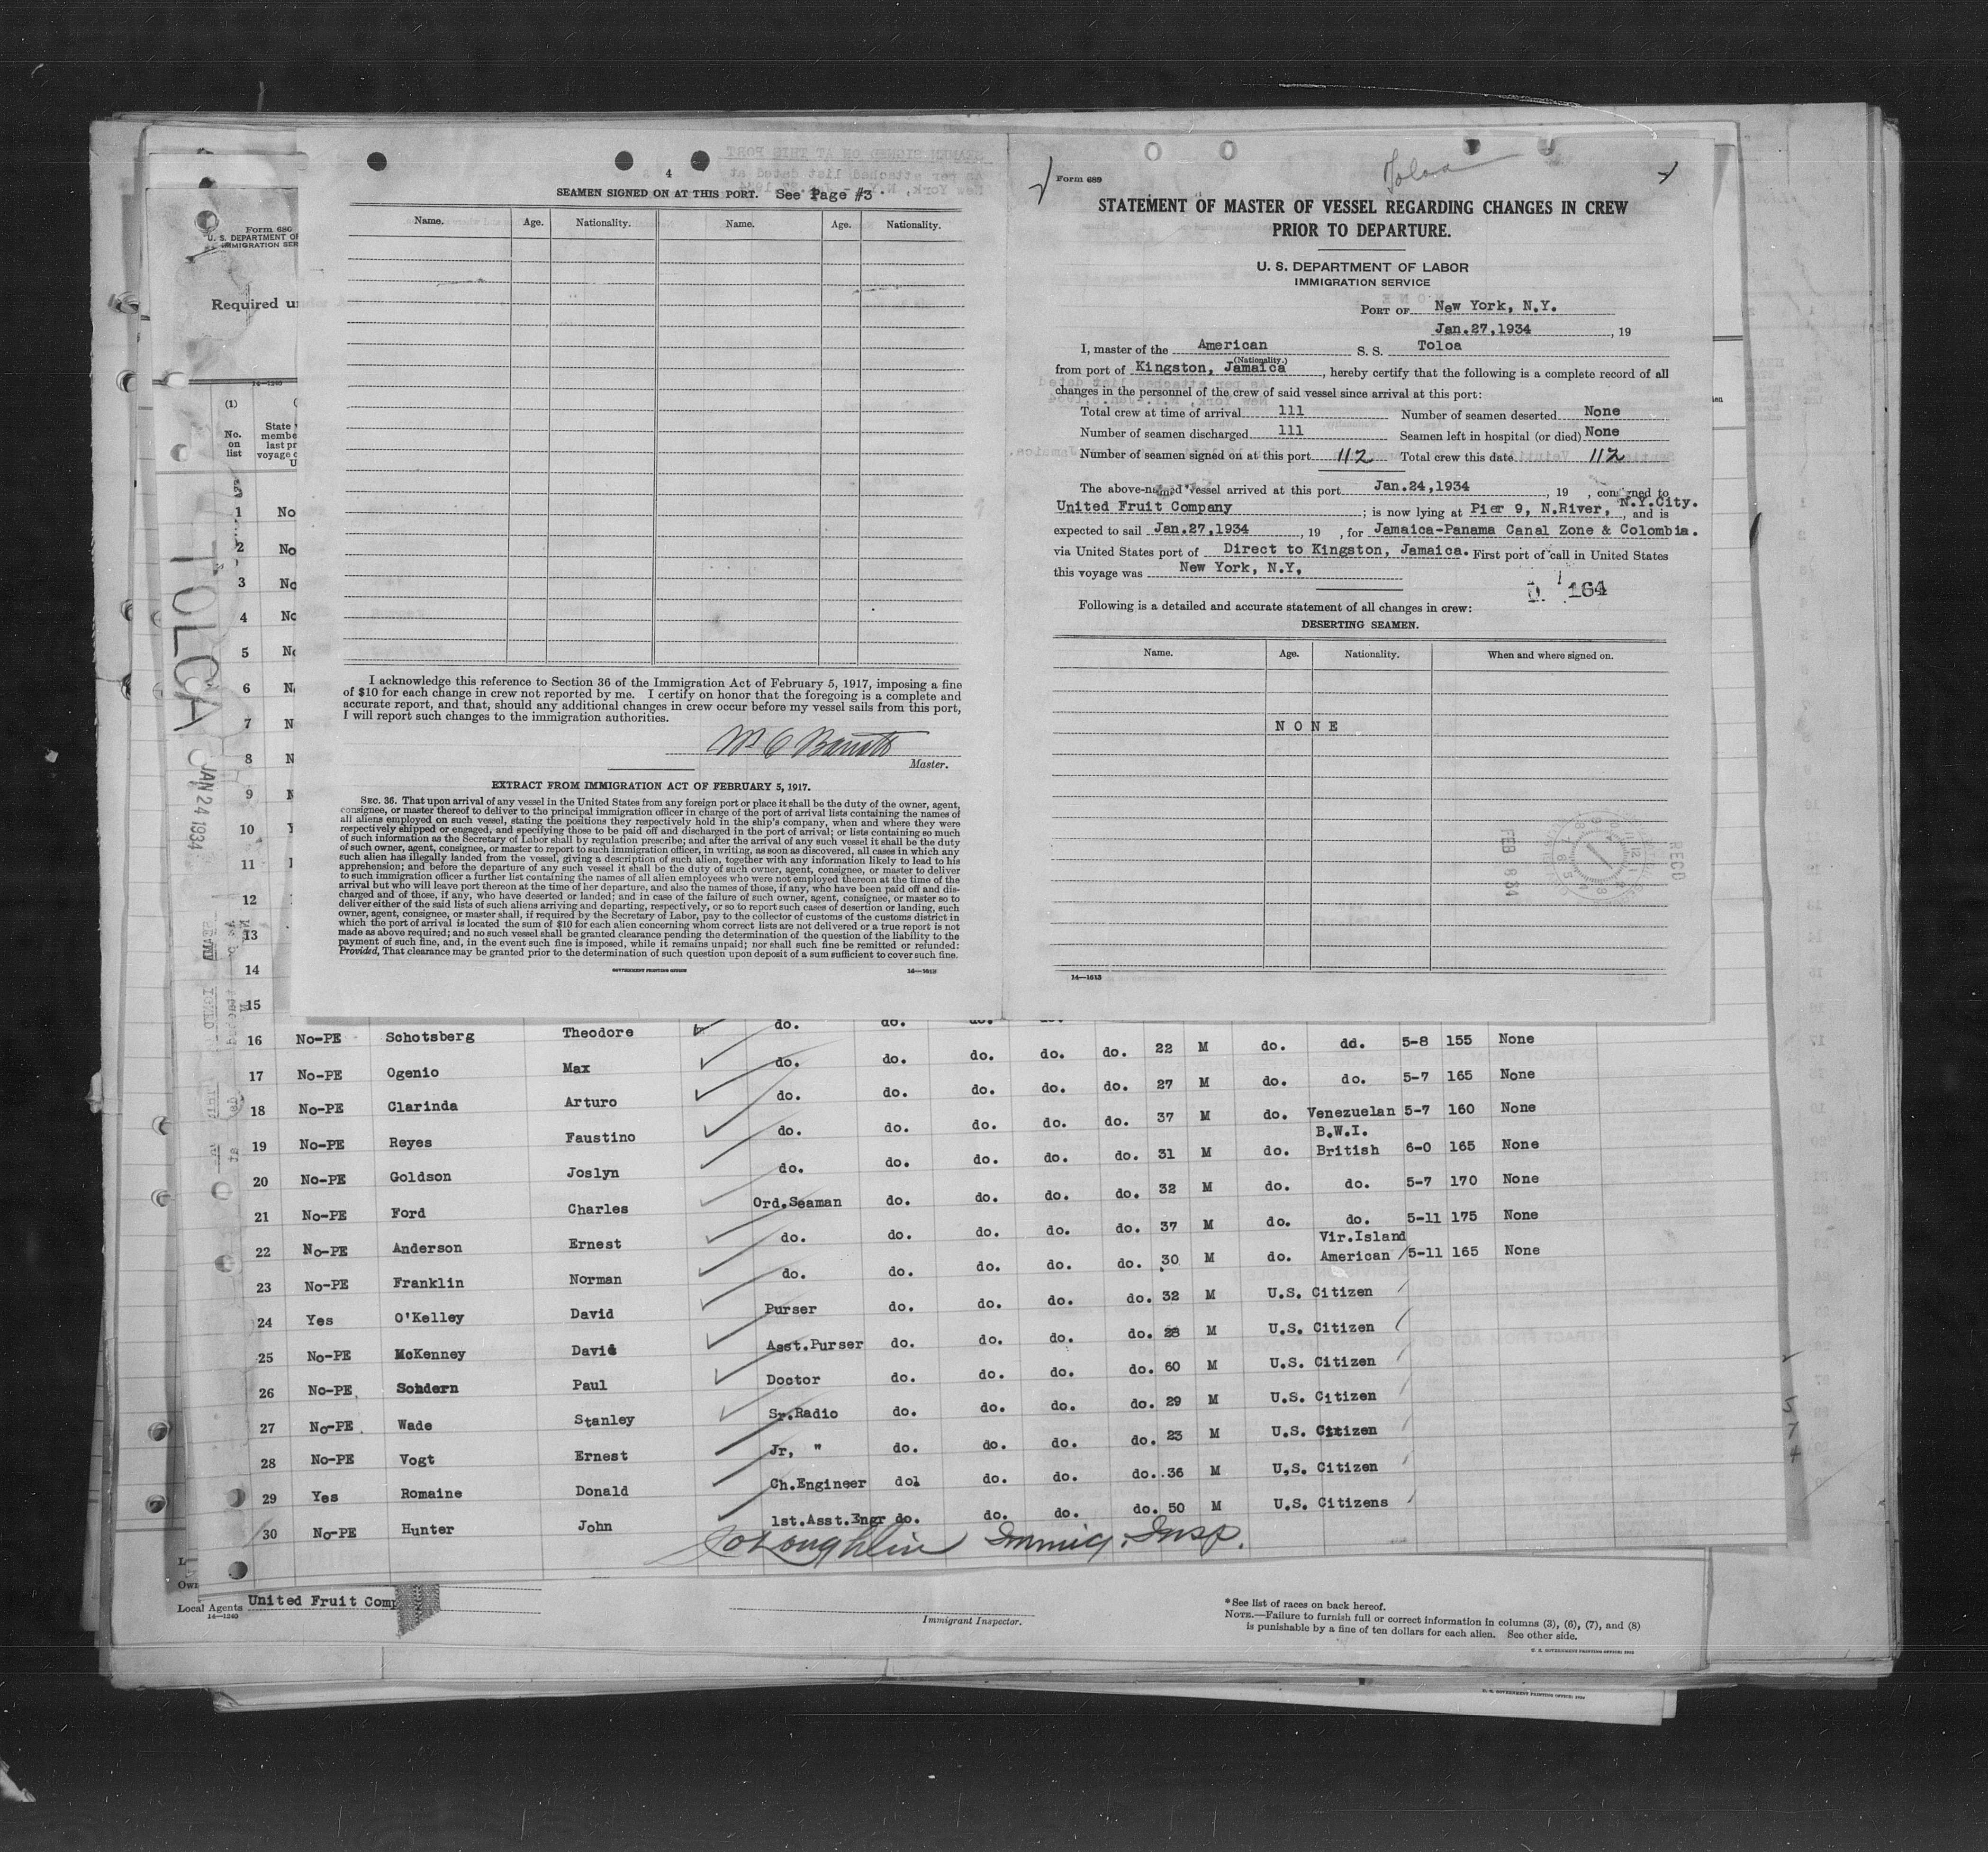 4
SEAMEN SIGNED ON AT THIS PORT. See Page #3.
Name. Age. Nationality. Name. Age. Nationality.
I acknowledge this reference to Section 36 of the Immigration Act of February 5, 1917, imposing a fine
of $10 for each change in crew not reported by me. I certify on honor that the foregoing is a complete and
accurate report, and that, should any additional changes in crew occur before my vessel sails from this port,
I will report such changes to the immigration authorities.
Master.
EXTRACT FROM IMMIGRATION ACT OF FEBRUARY 5, 1917.
SEC. 36. That upon arrival of any vessel in the United States from any foreign port or place it shall be the duty of the owner, agent,
consignee, or master thereof to deliver to the principal immigration officer in charge of the port of arrival lists containing the names of
all aliens employed on such vessel, stating the positions they respectively hold in the ship's company, when and where they were
respectively shipped or engaged, and specifying those to be paid off and discharged in the port of arrival; or lists containing so much
of such information as the Secretary of Labor shall by regulation prescribe; and after the arrival of any such vessel it shall be the duty
of such owner, agent, consignee, or master to report to such immigration officer, in writing, as soon as discovered, all cases in which any
such alien has illegally landed from the vessel, giving a description of such alien, together with any information likely to lead to his
apprehension; and before the departure of any such vessel it shall be the duty of such owner, agent, consignee, or master to deliver
to such immigration officer a further list containing the names of all alien employees who were not employed thereon at the time of the
arrival but who will leave port thereon at the time of her departure, and also the names of those, if any, who have been paid off and dis-
charged and of those, if any, who have deserted or landed; and in case of the failure of such owner, agent, consignee, or master so to
deliver either of the said lists of such aliens arriving and departing, respectively, or so to report such cases of desertion or landing, such
owner, agent, consignee, or master shall, if required by the Secretary of Labor, pay to the collector of customs of the customs district in
which the port of arrival is located the sum of $10 for each alien concerning whom correct lists are not delivered or a true report is not
made as above required; and no such vessel shall be granted clearance pending the determination of the question of the liability to the
payment of such fine, and, in the event such fine is imposed, while it remains unpaid; nor shall such fine be remitted or refunded:
Provided, That clearance may be granted prior to the determination of such question upon deposit of a sum sufficient to cover such fine.
GOVERNMENT PRINTING OFFICE 14—1613
Toloa
Form 689
STATEMENT OF MASTER OF VESSEL REGARDING CHANGES IN CREW
PRIOR TO DEPARTURE.
U. S. DEPARTMENT OF LABOR
IMMIGRATION SERVICE
PORT OF New York, N.Y.
Jan.27,1934, 19
I, master of the American S. S. Toloa
(Nationality.)
from port of Kingston, Jamaica, hereby certify that the following is a complete record of all
changes in the personnel of the crew of said vessel since arrival at this port:
Total crew at time of arrival 111 Number of seamen deserted None
Number of seamen discharged 111 Seamen left in hospital (or died) None
Number of seamen signed on at this port 112 Total crew this date 112
The above-named vessel arrived at this port Jan.24,1934, 19 , consigned to
United Fruit Company; is now lying at Pier 9, N.River, N.Y.City., and is
expected to sail Jan.27,1934, 19 , for Jamaica-Panama Canal Zone & Colombia.
via United States port of Direct to Kingston, Jamaica. First port of call in United States
this voyage was New York, N.Y.
164
Following is a detailed and accurate statement of all changes in crew:
DESERTING SEAMEN.
Name. Age. Nationality. When and where signed on.
NONE
FEB 8 34
REC'D
14—1613
Form 680
U. S. DEPARTMENT OF
IMMIGRATION SER
Required u
14—1240
(1)
No. on list
State
membe
last pr
voyage
U
TOLOA
JAN 24 1934
1 No
2 No
3 No
4 No
5 No
6 N
7 N
8 N
9 N
10 Y
11
12
13
14
15
do. do. do. do.
16 No-PE Schotsberg Theodore do. do. do. do. do. 22 M do. dd. 5-8 155 None
17 No-PE Ogenio Max do. do. do. do. do. 27 M do. do. 5-7 165 None
18 No-PE Clarinda Arturo do. do. do. do. do. 37 M do. Venezuelan 5-7 160 None
19 No-PE Reyes Faustino do. do. do. do. do. 31 M do. B.W.I. British 6-0 165 None
20 No-PE Goldson Joslyn do. do. do. do. do. 32 M do. do. 5-7 170 None
21 No-PE Ford Charles Ord.Seaman do. do. do. do. 37 M do. do. 5-11 175 None
22 No-PE Anderson Ernest do. do. do. do. do. 30 M do. Vir.Island American 5-11 165 None
23 No-PE Franklin Norman do. do. do. do. do. 32 M U.S. Citizen
24 Yes O'Kelley David Purser do. do. do. do. 28 M U.S. Citizen
25 No-PE McKenney David Asst.Purser do. do. do. do. 60 M U.S. Citizen
26 No-PE Paul Doctor do. do. do. do. 29 M U.S. Citizen
27 No-PE Wade Stanley Sr.Radio do. do. do. do. 23 M U.S. Citizen
28 No-PE Vogt Ernest Jr, " do. do. do. do. 36 M U.S. Citizen
29 Yes Romaine Donald Ch.Engineer do. do. do. do. 50 M U.S. Citizens
30 No-PE Hunter John 1st.Asst.Engr do. do. do.
Immig. Insp.
574
Own
Local Agents United Fruit Comp
14—1240
Immigrant Inspector.
*See list of races on back hereof.
NOTE.—Failure to furnish full or correct information in columns (3), (6), (7), and (8)
is punishable by a fine of ten dollars for each alien. See other side.
U. S. GOVERNMENT PRINTING OFFICE
U. S. GOVERNMENT PRINTING OFFICE